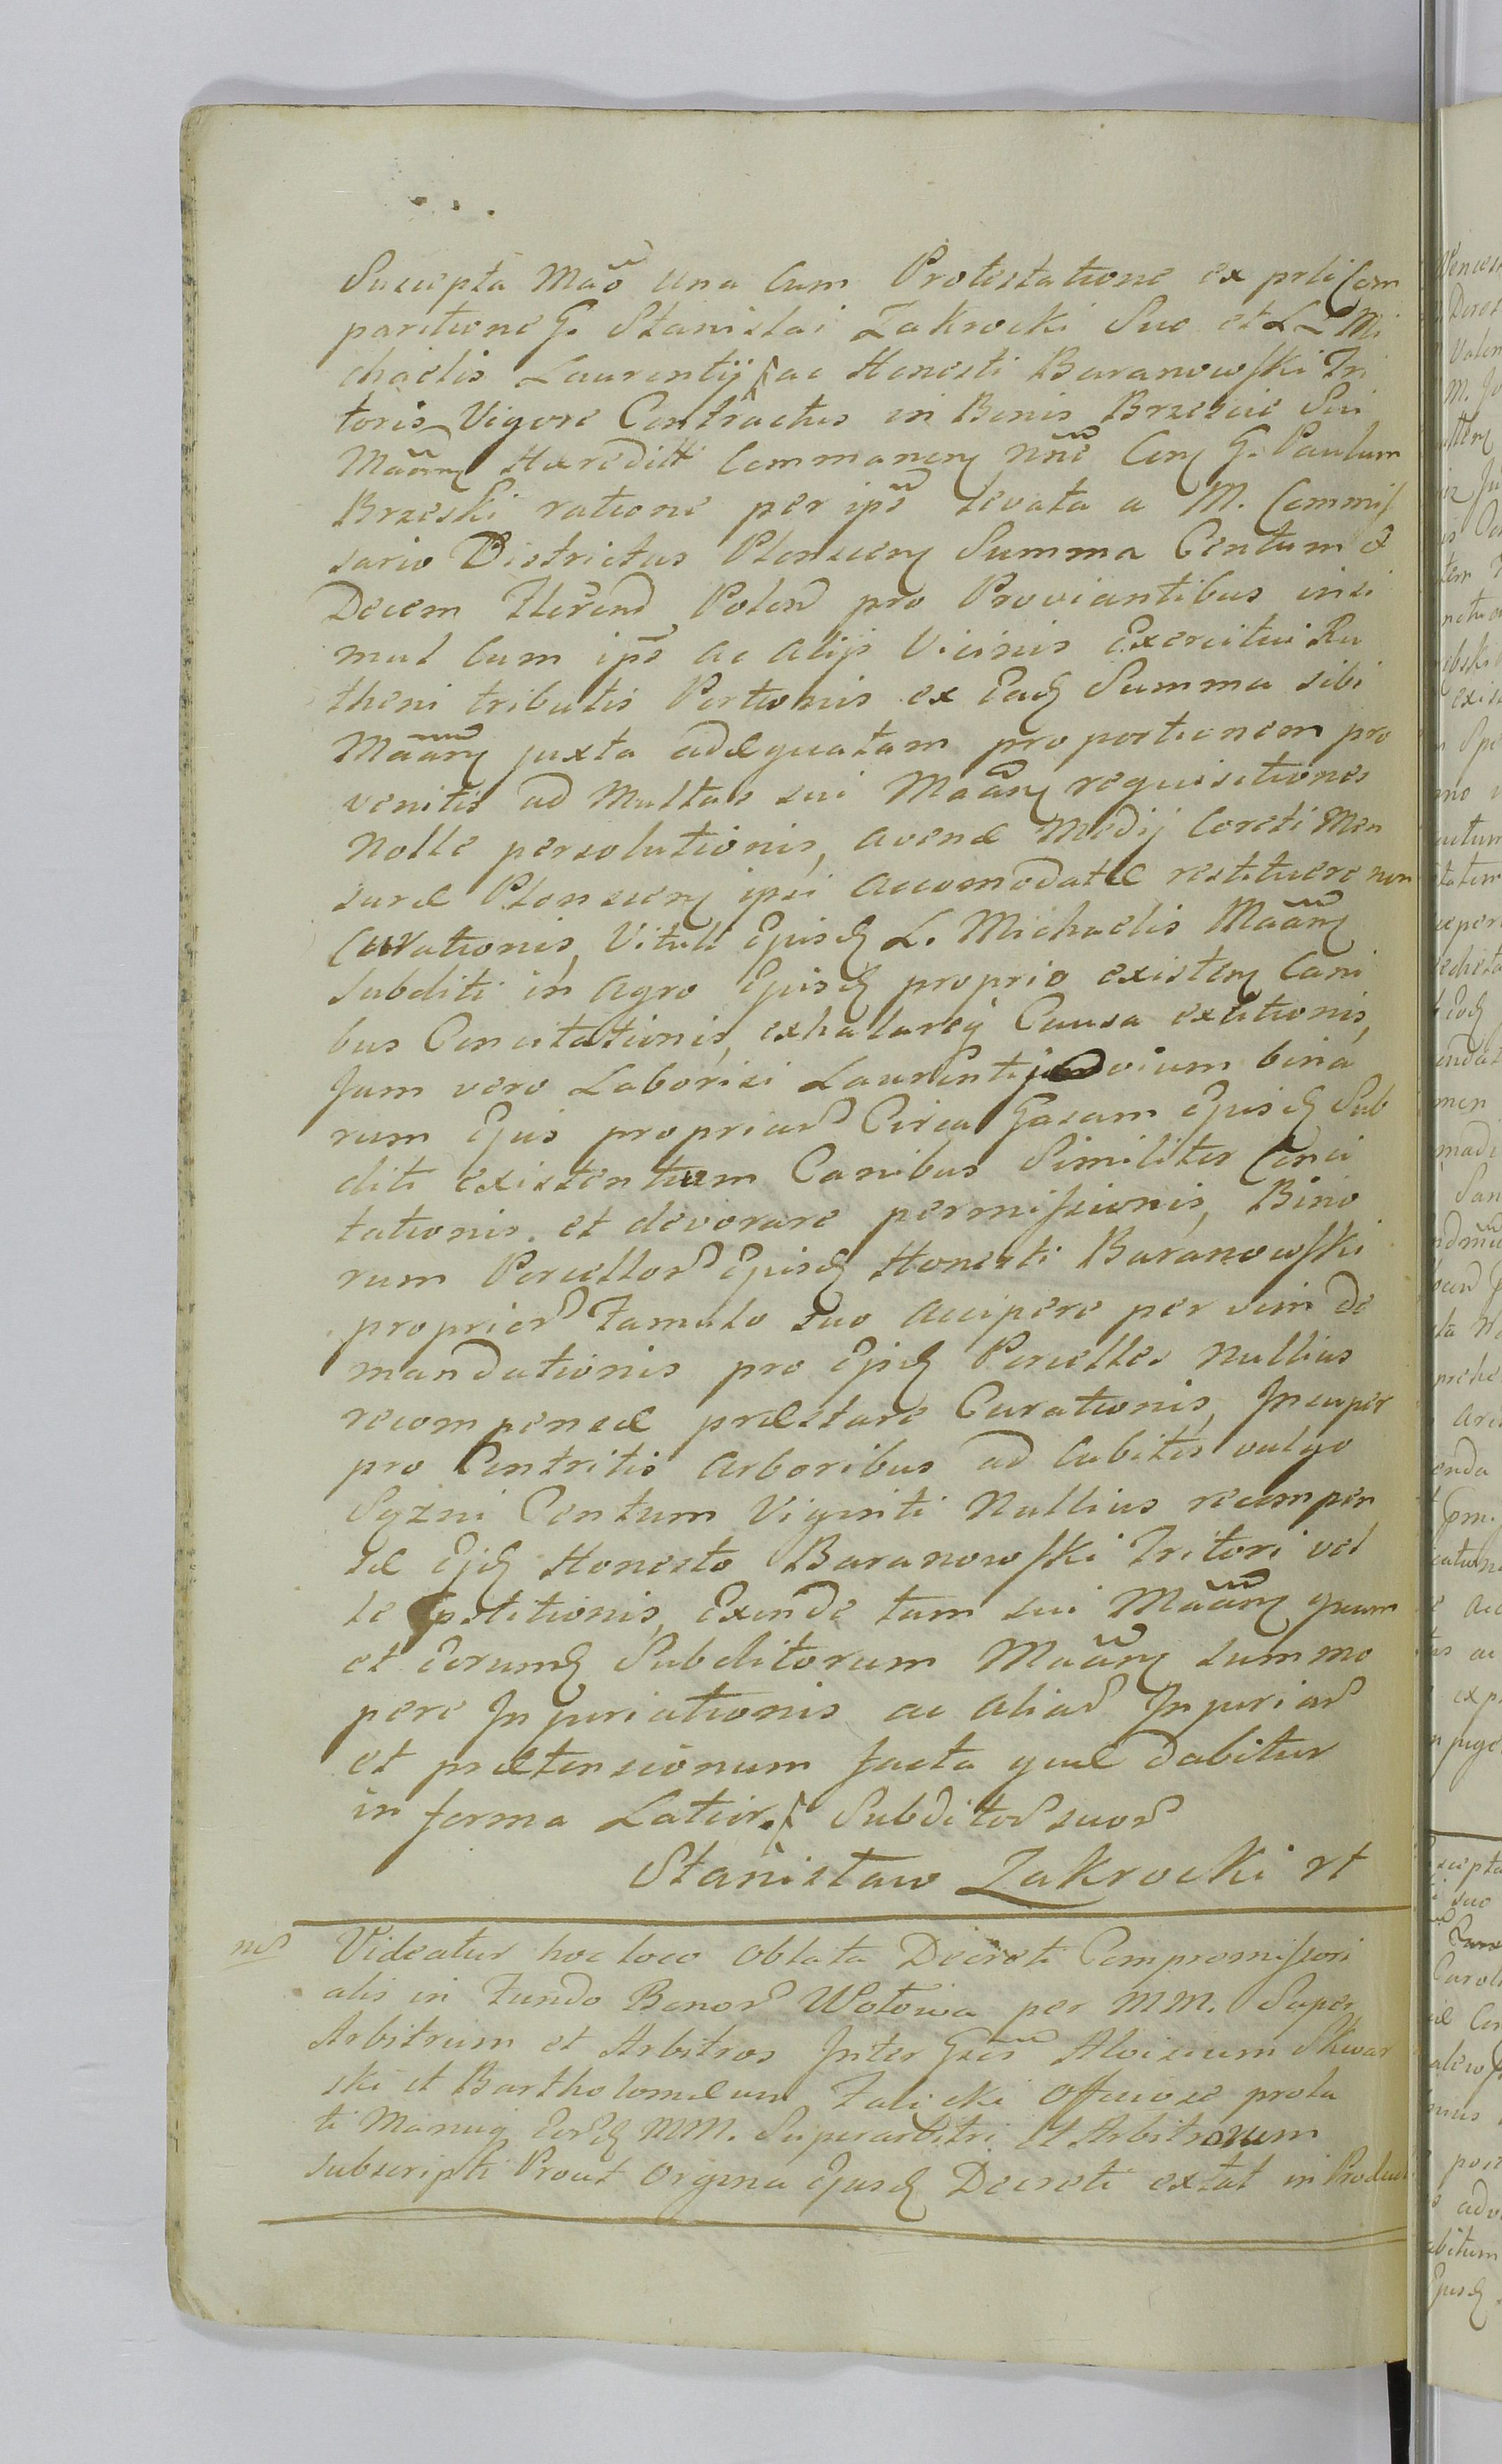 Suscepta Mãõ una cum Protestatione ex prli Com
paritione G. Stanislai Zakrocki Suo et LL Mi
chaelis Laurentij ac Honesti Baranowski Tri
toris Vigore Contractus in Bonis Brzescie Sui
Mãan Haereditt Commanen nñe Con G. Paulum
Brzeski ratione per ips levata a M. Commis
sario Districtus Plonscen Summa Centum &
Decem floren Polon pro Proviantibus insi
mul cum ips ac alijs Vicinis Exercitui Ru
theni tributis Portionis ex Eadq Summa sibi
Mãan juxta adæquatam proportionem pro
venitis ad Multas sui Mãan requisitiones
Nolle persolutionis, avenæ Medij Coreti Men
suræ Plonscen ipsi accomodatæ restituere non
Curationis, Vituli Ejusdq L. Michaelis Mãan
Subditi in Agro Ejusdq proprio existen Cani
bus Concitationis, exhalareq Causa extitionis,
Jam vero Laboriosi Laurentij ovium bina
rum Ejus propriar Circa Gazam Ejusdq Sub
diti existentium Canibus Similiter Conci
tationis et devorare permissionis, Bino
rum Porcellor Ejusdq Honesti Baranowski
proprior Famulo suo accipere per vim de
mandationis pro Ejsdq Porcellos Nullius
recompensæ præstare Curationis, Insuper
pro Contritis Arboribus ad Cubitis vulgo
Sążni Centum Viginti Nullius recompen
sæ Ejdq Honesto Baranowski Tritori vel
le pstitionis, Exinde tam sui Mãan quam
et Eorumdq Subditorum Mãan summo
pere Injuriationis ac aliar Injuriar
et prætensionum facta quæ dabitur
in forma Latior. Subditor suor
Stanisław Zakrocki rt
Videatur hoc loco Oblata Decreti Compromissori
alis in Fundo Bonor Wołowa per MM. Super
Arbitrum et Arbitros Inter Gsos Aloisium Skwar
ski et Bartholomæum Zalicki Officiose prola
ti Manuq Eordq MM. Superarbitri et Arbitrorum
subscripti Prout Orgina Ejusdq Decreti extat in Produc